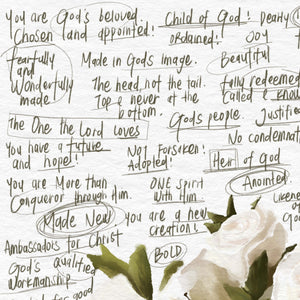 You are God's beloved Child of God! Dearly
Chosen and appointed! ordained! Joy
fearfully and Wonderfully made
Made in God's image. Beautiful
The head not the tail. fully redeemed
Top & never at the bottom. Called & know
The One the Lord Loves
God's people Justifie
No condemnat
You have a future and hope!
Not Forsaken! Adopted!
Heir of God
You are More than Conqueror through Him.
ONE spirit with Him
Anointed
Made New
You are a new creation!
Ambassadors for Christ
BOLD
God's qualified Workmanship
for good